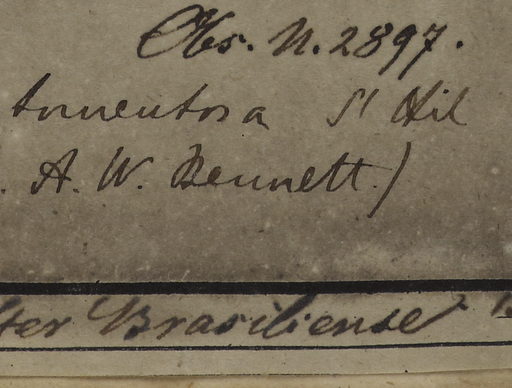 Obs. N. 2897.
tomentosa St Hil
. A. W. Bennett.)
ter Brasiliense